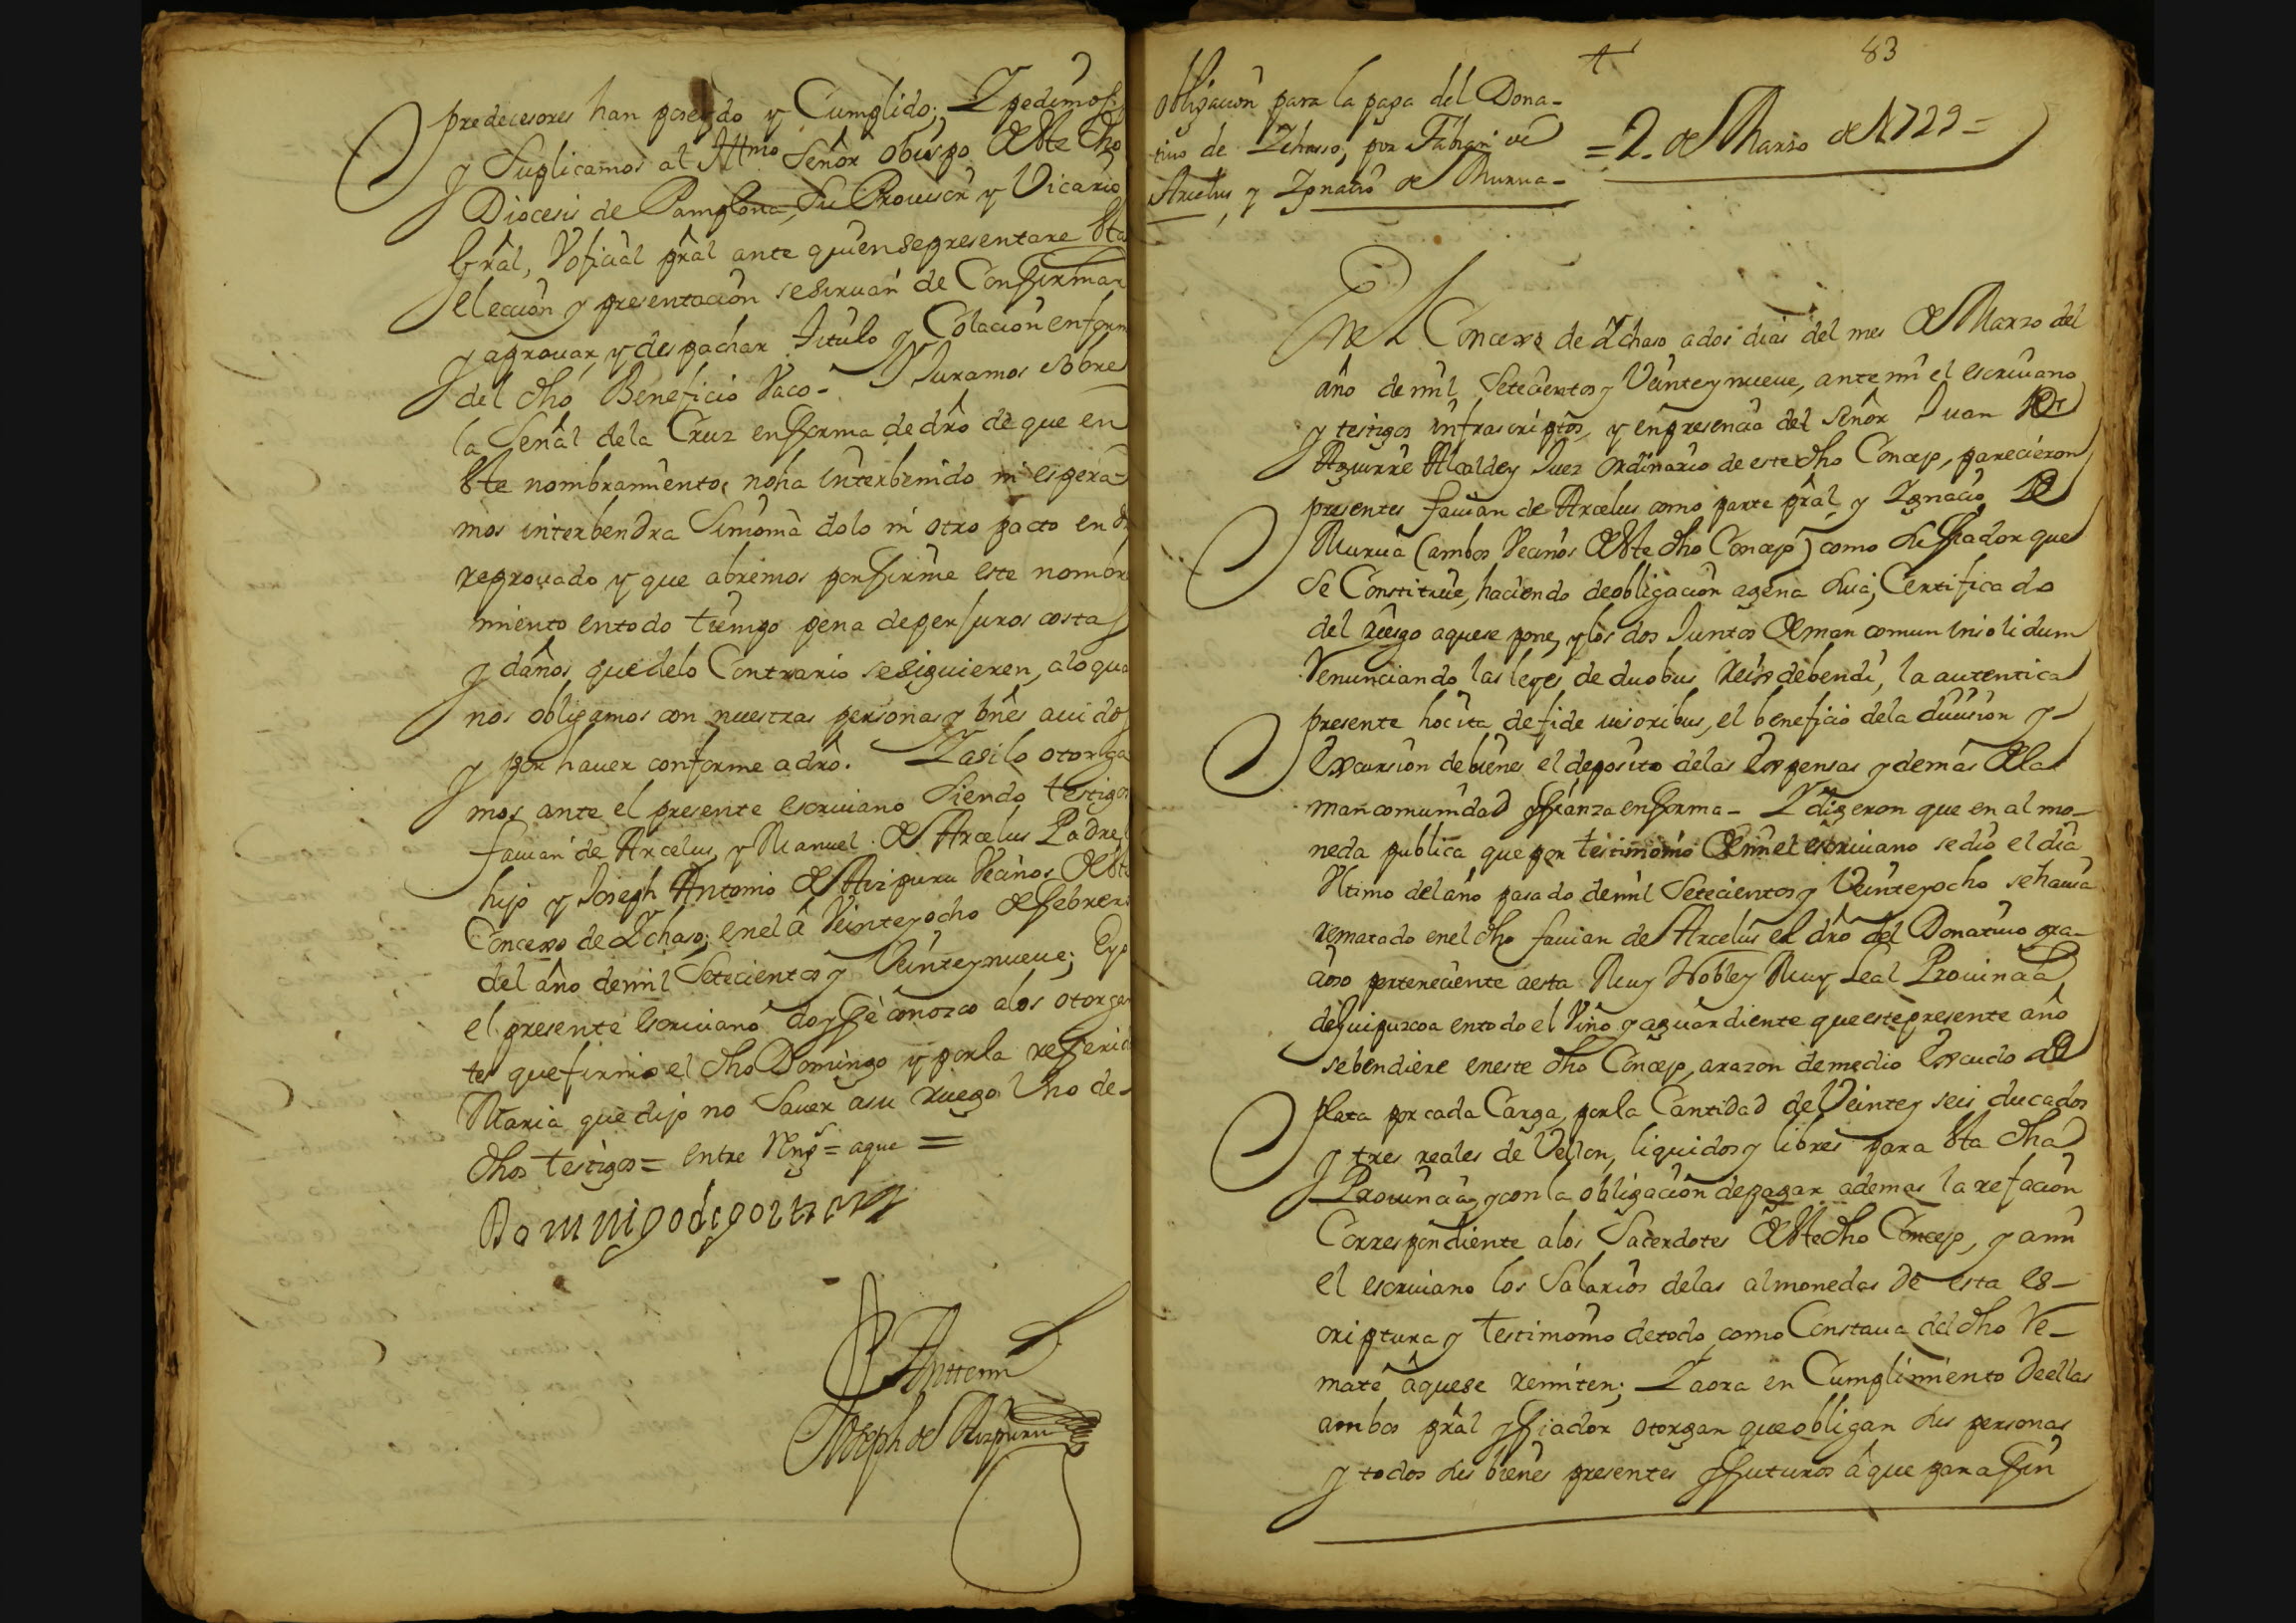 predecesores han poseydo y Cumplido; Y pedimos
y Suplicamos al Yllmo Señor obispo deste dho
Diocesis de Pamplona, Su Provisor y Vicario
Gral, V oficial pral ante quien se presentare esta
eleccion y presentacion se siruan de Confirmar
y aprouar, y despachar Titulo y Colacion en form
del dho Beneficio Vaco- Y Juramos sobre
la Señal dela Cruz en fforma de dro de que en
este nombramiento, no ha interbenido ni espera-
mos interbendra Simonia dolo ni otro pacto en d
reprouado y que abremos por ffirme este nombra
miento en todo tiempo pena de perjuros costas
y daños, que delo Contrario se siguieren, alo qua
nos obligamos con nuestras personas y bnes auidos
y por hauer conforme a dro. Y asi lo otorga
mos ante el presente escriuano Siendo testigos
fauian de Arcelus, y Manuel de Arcelus Padre e
hijo y Joseph Antonio de Aizpuru Vecinos deste
Concexo de Ychaso; en el a Veinte y ocho de ffebrero
del año de mil Setecientos y Veinte y nueue; E yo
el presente escriuano doy ffe conozco alos otorgan
tes que firmo el dho Domingo y por la referid
Maria que dijo no Sauer a su ruego Uno de
dhos testigos = entre Rngs = aque =
Domingo de gorti
Antte mi
Joseph de Aizpuru
83
Obligacion para la paga del Dona-
tiuo de Ychasso, por Fabian de
Arcelus, y Ygnacio de Murua-
= 2. de Marzo de 1729 =
En el Concexo de Ychaso a dos dias del mes de Marzo del
año de mil Setecientos y Veinte y nueue, ante mi el escriuano
y testigos infrascriptos, y en presencia del Señor Juan de
Aguirre Alcalde y Juez ordinario de este dho Concejo, parecieron
presentes fauian de Arcelus como parte pral, y Ygnacio de
Murua (ambos Vecinos deste dho Concejo) como su ffiador que
se Constitue, haciendo de obligacion agena suia, Certificado
del riesgo aque se pone, y los dos Juntos de mancomun insolidum
Renunciando las leyes de duobus reis debendi, la autentica
presente hoc ita de fide iusoribus, el beneficio dela diuision y
Excursion de bienes el deposito delas Expensas y demas dela
mancomunidad y ffianza en fforma- Y dijeron que en almo-
neda publica que por testimonio de mi el escriuano se dio el dia
Ultimo del año pasado de mil Setecientos y Veinte y ocho se hauia
rematado en el dho fauian de Arcelus el dro del Donatiuo gra-
cioso perteneciente a esta Muy Noble y Muy Leal Prouincia
de Guipuzcoa en todo el Vino y aguardiente que este presente año
se bendiere en este dho Concejo, a razon de medio Escudo de
plata por cada Carga, por la Cantidad de Veinte y seis ducados
y tres reales de Vellon, liquidos y libres para esta dha
Prouincia, y con la obligacion de pagar ademas la refacion
Correspondiente alos Sacerdotes deste dho Concejo, y a mi
el escriuano los Salarios delas almonedas de esta es-
criptura y testimonio de todo, como Constaua del dho Re-
mate aque se remiten; Y aora en Cumplimiento de ellas
ambos pral y ffiador otorgan que obligan sus personas
y todos sus bienes presentes y ffuturos aque para ffin